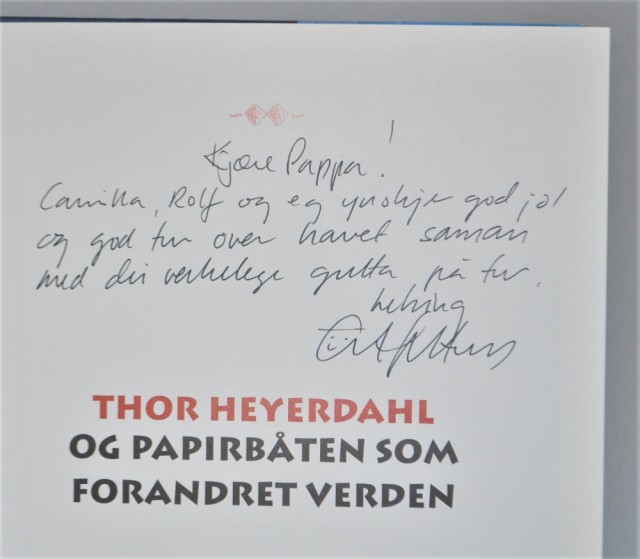 Kjære Pappa!
Camilla, Rolf og eg ynskje god jol
og god tur over havet saman
med dei verkelege gutta på tur.
helsing
THOR HEYERDAHL
OG PAPIRBÅTEN SOM
FORANDRET VERDEN